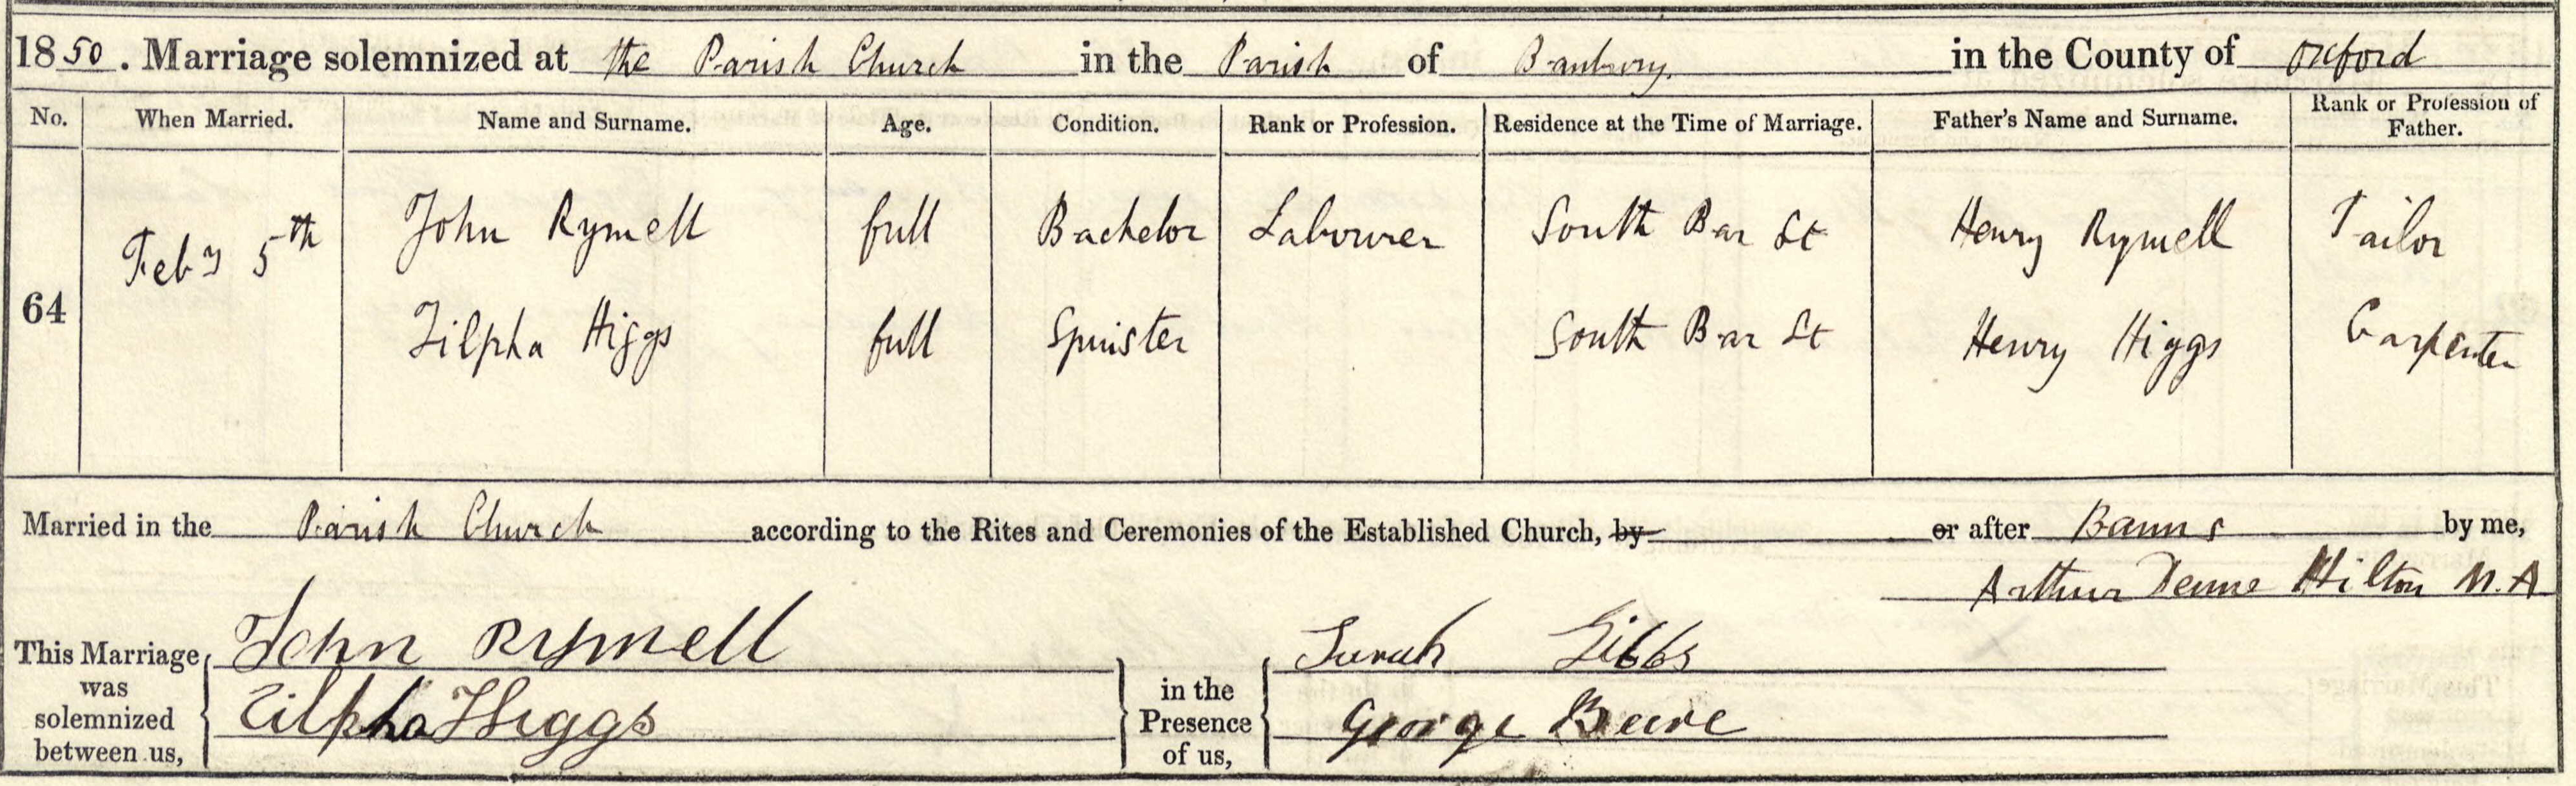 1850. Marriage solemnized at the Parish Church in the Parish of Banbury. in the County of Oxford
No. When Married. Name and Surname. Age. Condition. Rank or Profession. Residence at the Time of Marriage. Father's Name and Surname. Rank or Profession of Father.
64 Feby 5th John Rymell full Bachelor Labourer South Bar St Henry Rymell Tailor
Zilpha Higgs full Spinster South Bar St Henry Higgs Carpenter
Married in the Parish Church according to the Rites and Ceremonies of the Established Church, by or after Banns by me,
Arthur Denne Hilton M.A
This Marriage was solemnized between us, John Rymell in the Presence of us, Sarah Gibbs
Zilpha Higgs George